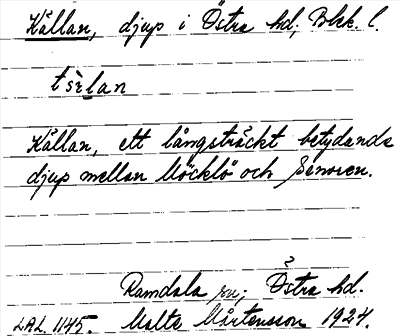 Källan, djup i Östra hd, Blek. l.
tsè̀lan
Källan, ett långsträckt betydande
djup mellan Möcklö och Senoren.
Ramdala sn; Östra hd.
LAL. 1145. Malte Mårtensson 1924.